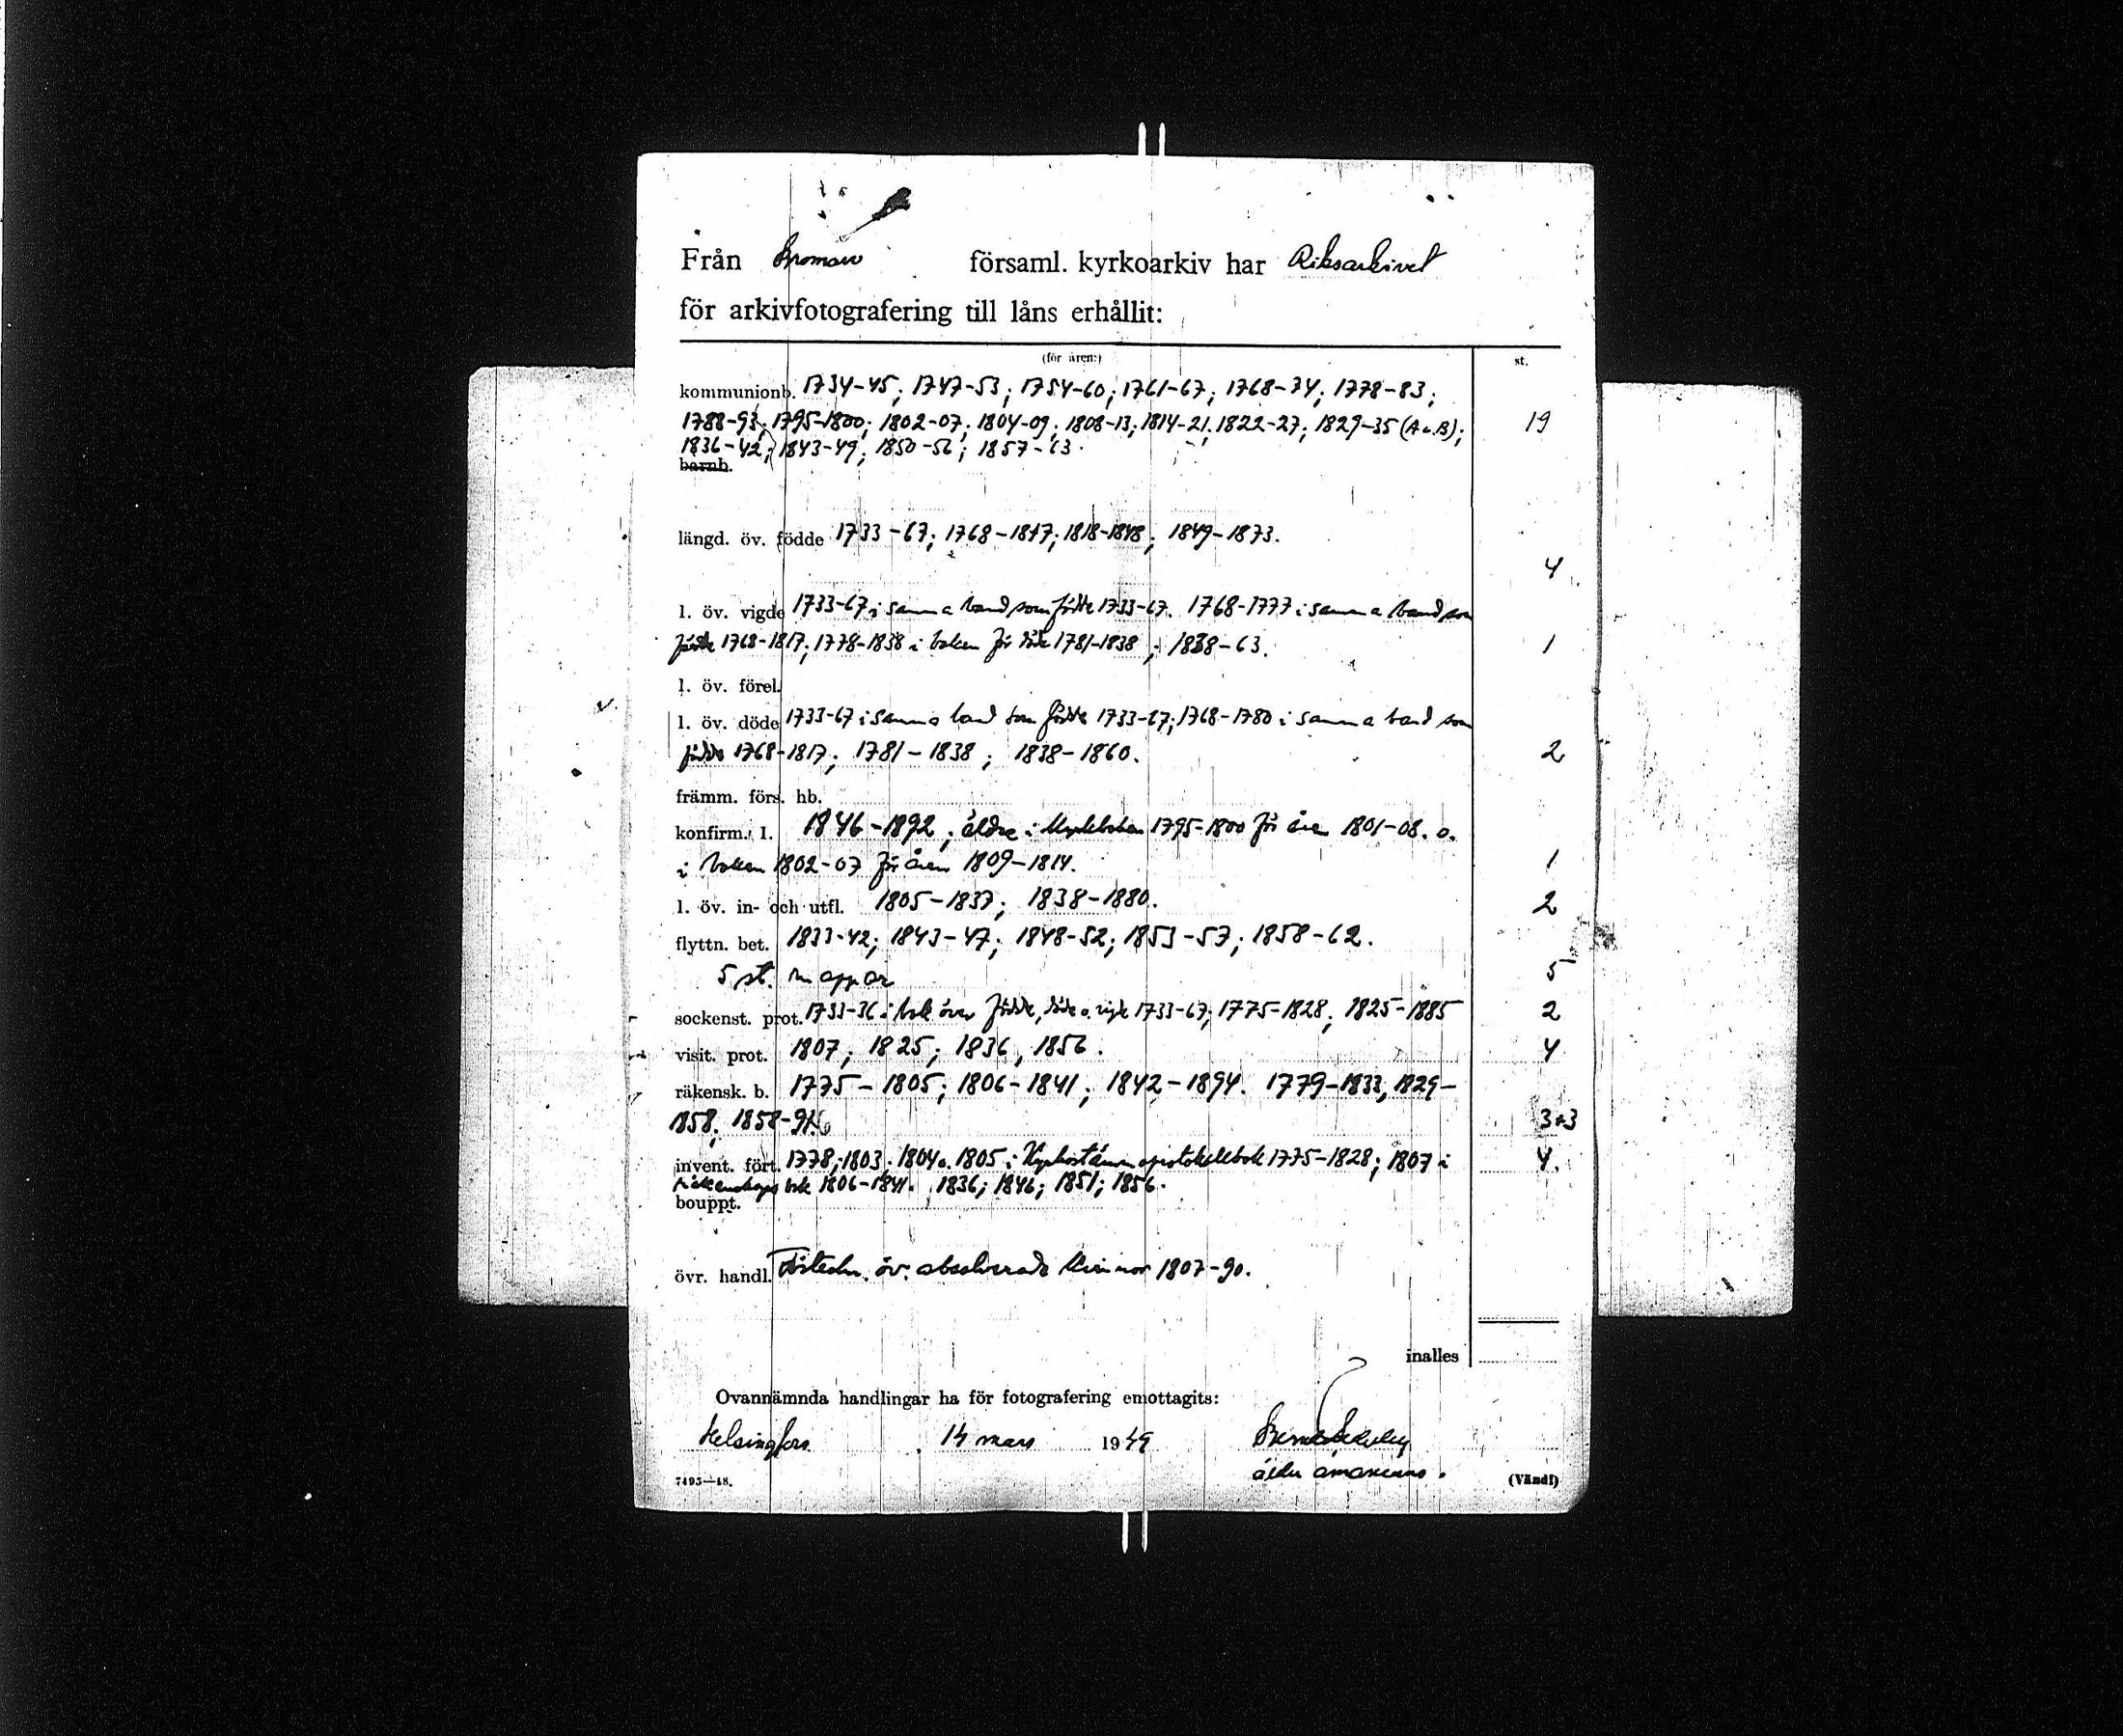 Från Bromarv församl. kyrkoarkiv har Riksarkivet
för arkivfotografering till låns erhållit:
(för åren:) st.
kommunionb. 1734-45; 1747-53; 1754-60; 1761-67; 1768-74; 1778-83;
1788-93; 1795-1800; 1802-07; 1804-09; 1808-13; 1814-21; 1822-27; 1829-35 (A o. B); 19
1836-42; 1843-49; 1850-56; 1857-63.
barnb.
längd. öv. födde 1733-67; 1768-1817; 1818-1848; 1849-1873.
4
l. öv. vigde 1733-67 i samma band som födde 1733-67. 1768-1777 i samma band som
födde 1768-1817; 1778-1838 i boken för döde 1781-1838; 1838-63. 1
l. öv. förel.
l. öv. döde 1733-67 i samma band som födde 1733-67; 1768-1780 i samma band som
födde 1768-1817; 1781-1838; 1838-1860. 2
främm. förs. hb.
konfirm. l. 1846-1892; äldre i 1795-1800 för åren 1801-08. o.
i boken 1802-07 för åren 1809-1814. 1
l. öv. in- och utfl. 1805-1837; 1838-1880. 2
flyttn. bet. 1833-42; 1843-47; 1848-52; 1853-57; 1858-62.
5 st. mappar 5
sockenst. prot. 1733-36 i bok över födde, döde o. vigde 1733-67; 1775-1828; 1825-1885 2
visit. prot. 1807; 1825; 1836, 1856. 4
räkensk. b. 1775-1805; 1806-1841; 1842-1894. 1779-1833, 1829-
1858; 1858- 3+3
invent. fört. 1778; 1803; 1804 o. 1805 i 1775-1828; 1807 i 4.
räkenskapsbok 1806-1841. 1836; 1846; 1851; 1856.
bouppt.
övr. handl. Förteckn. öv. absolverade kvinnor 1807-90.
inalles
Ovannämnda handlingar ha för fotografering emottagits:
Helsingfors. 14 mars 1949
7495—48. (Vänd!)